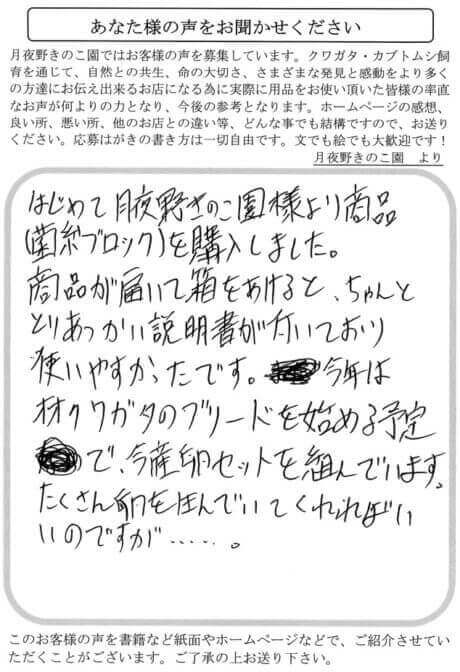 あなた様の声をお聞かせください
月夜野きのこ園ではお客様の声を募集しています。クワガタ・カブトムシ飼
育を通じて、自然との共生、命の大切さ、さまざまな発見と感動をより多く
の方達にお伝え出来るお店になる為に実際に用品をお使い頂いた皆様の率直
なお声が何よりの力となり、今後の参考となります。ホームページの感想、
良い所、悪い所、他のお店との違い等、どんな事でも結構ですので、お送り
ください。応募はがきの書き方は一切自由です。文でも絵でも大歓迎です！
月夜野きのこ園　より
はじめて月夜野きのこ園様より商品
(菌糸ブロック)を購入しました。
商品が届いて箱をあけると、ちゃんと
とりあつかい説明書が付いており
使いやすかったです。今年は
オオクワガタのブリードを始める予定
で、今産卵セットを組んでいます。
たくさん卵を産んでいてくれればい
いのですが……。
このお客様の声を書籍など紙面やホームページなどで、ご紹介させてい
ただくことがございます。ご了承の上お送り下さい。